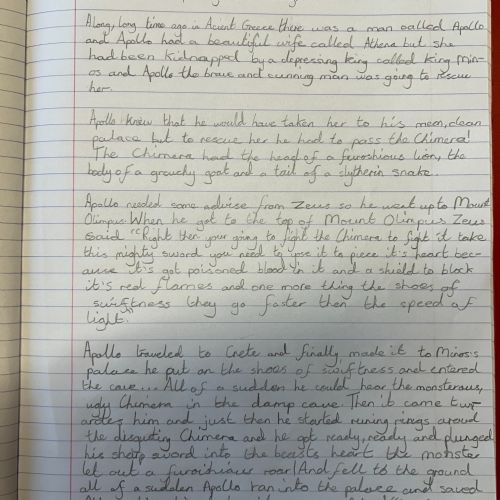 Along, long time ago in Acient Greece there was a man called Apollo
and Apollo had a beautiful wife called Athena but she
had been kidnapped by a depressing king called king Min-
os and Apollo the brave and cunning man was going to rescue
her.
Apollo knew that he would have taken her to his clean
palace but to rescue her he had to pass the Chimera!
The Chimera had the head of a furoshious lion, the
body of a grouchy goat and a tail of a slytherin snake.
Apollo needed some advise from Zeus so he went up to Mount
Olimpus. When he got to the top of Mount Olimpus Zeus
said "Right then your going to fight the Chimera to fight it take
this mighty sword you need to use it to piece it's heart bec-
ause it's got poisoned blood in it and a shield to block
it's red flames and one more thing the shoes of
swiftness they go faster then the speed of
light."
Apollo traveled to Crete and finally made it to Minos's
palace he put on the shoes of swiftness and entered
the cave... All of a sudden he could hear the monsterous,
ugly Chimera in the damp cave. Then it came tow-
ardes him and just then he started runing rings around
the disgusting Chimera and he got ready, ready and plunged
his sharp sword into the beasts heart the monster
let out a furoishious roar! And fell to the ground
all of a sudden Apollo ran into the palace and saved